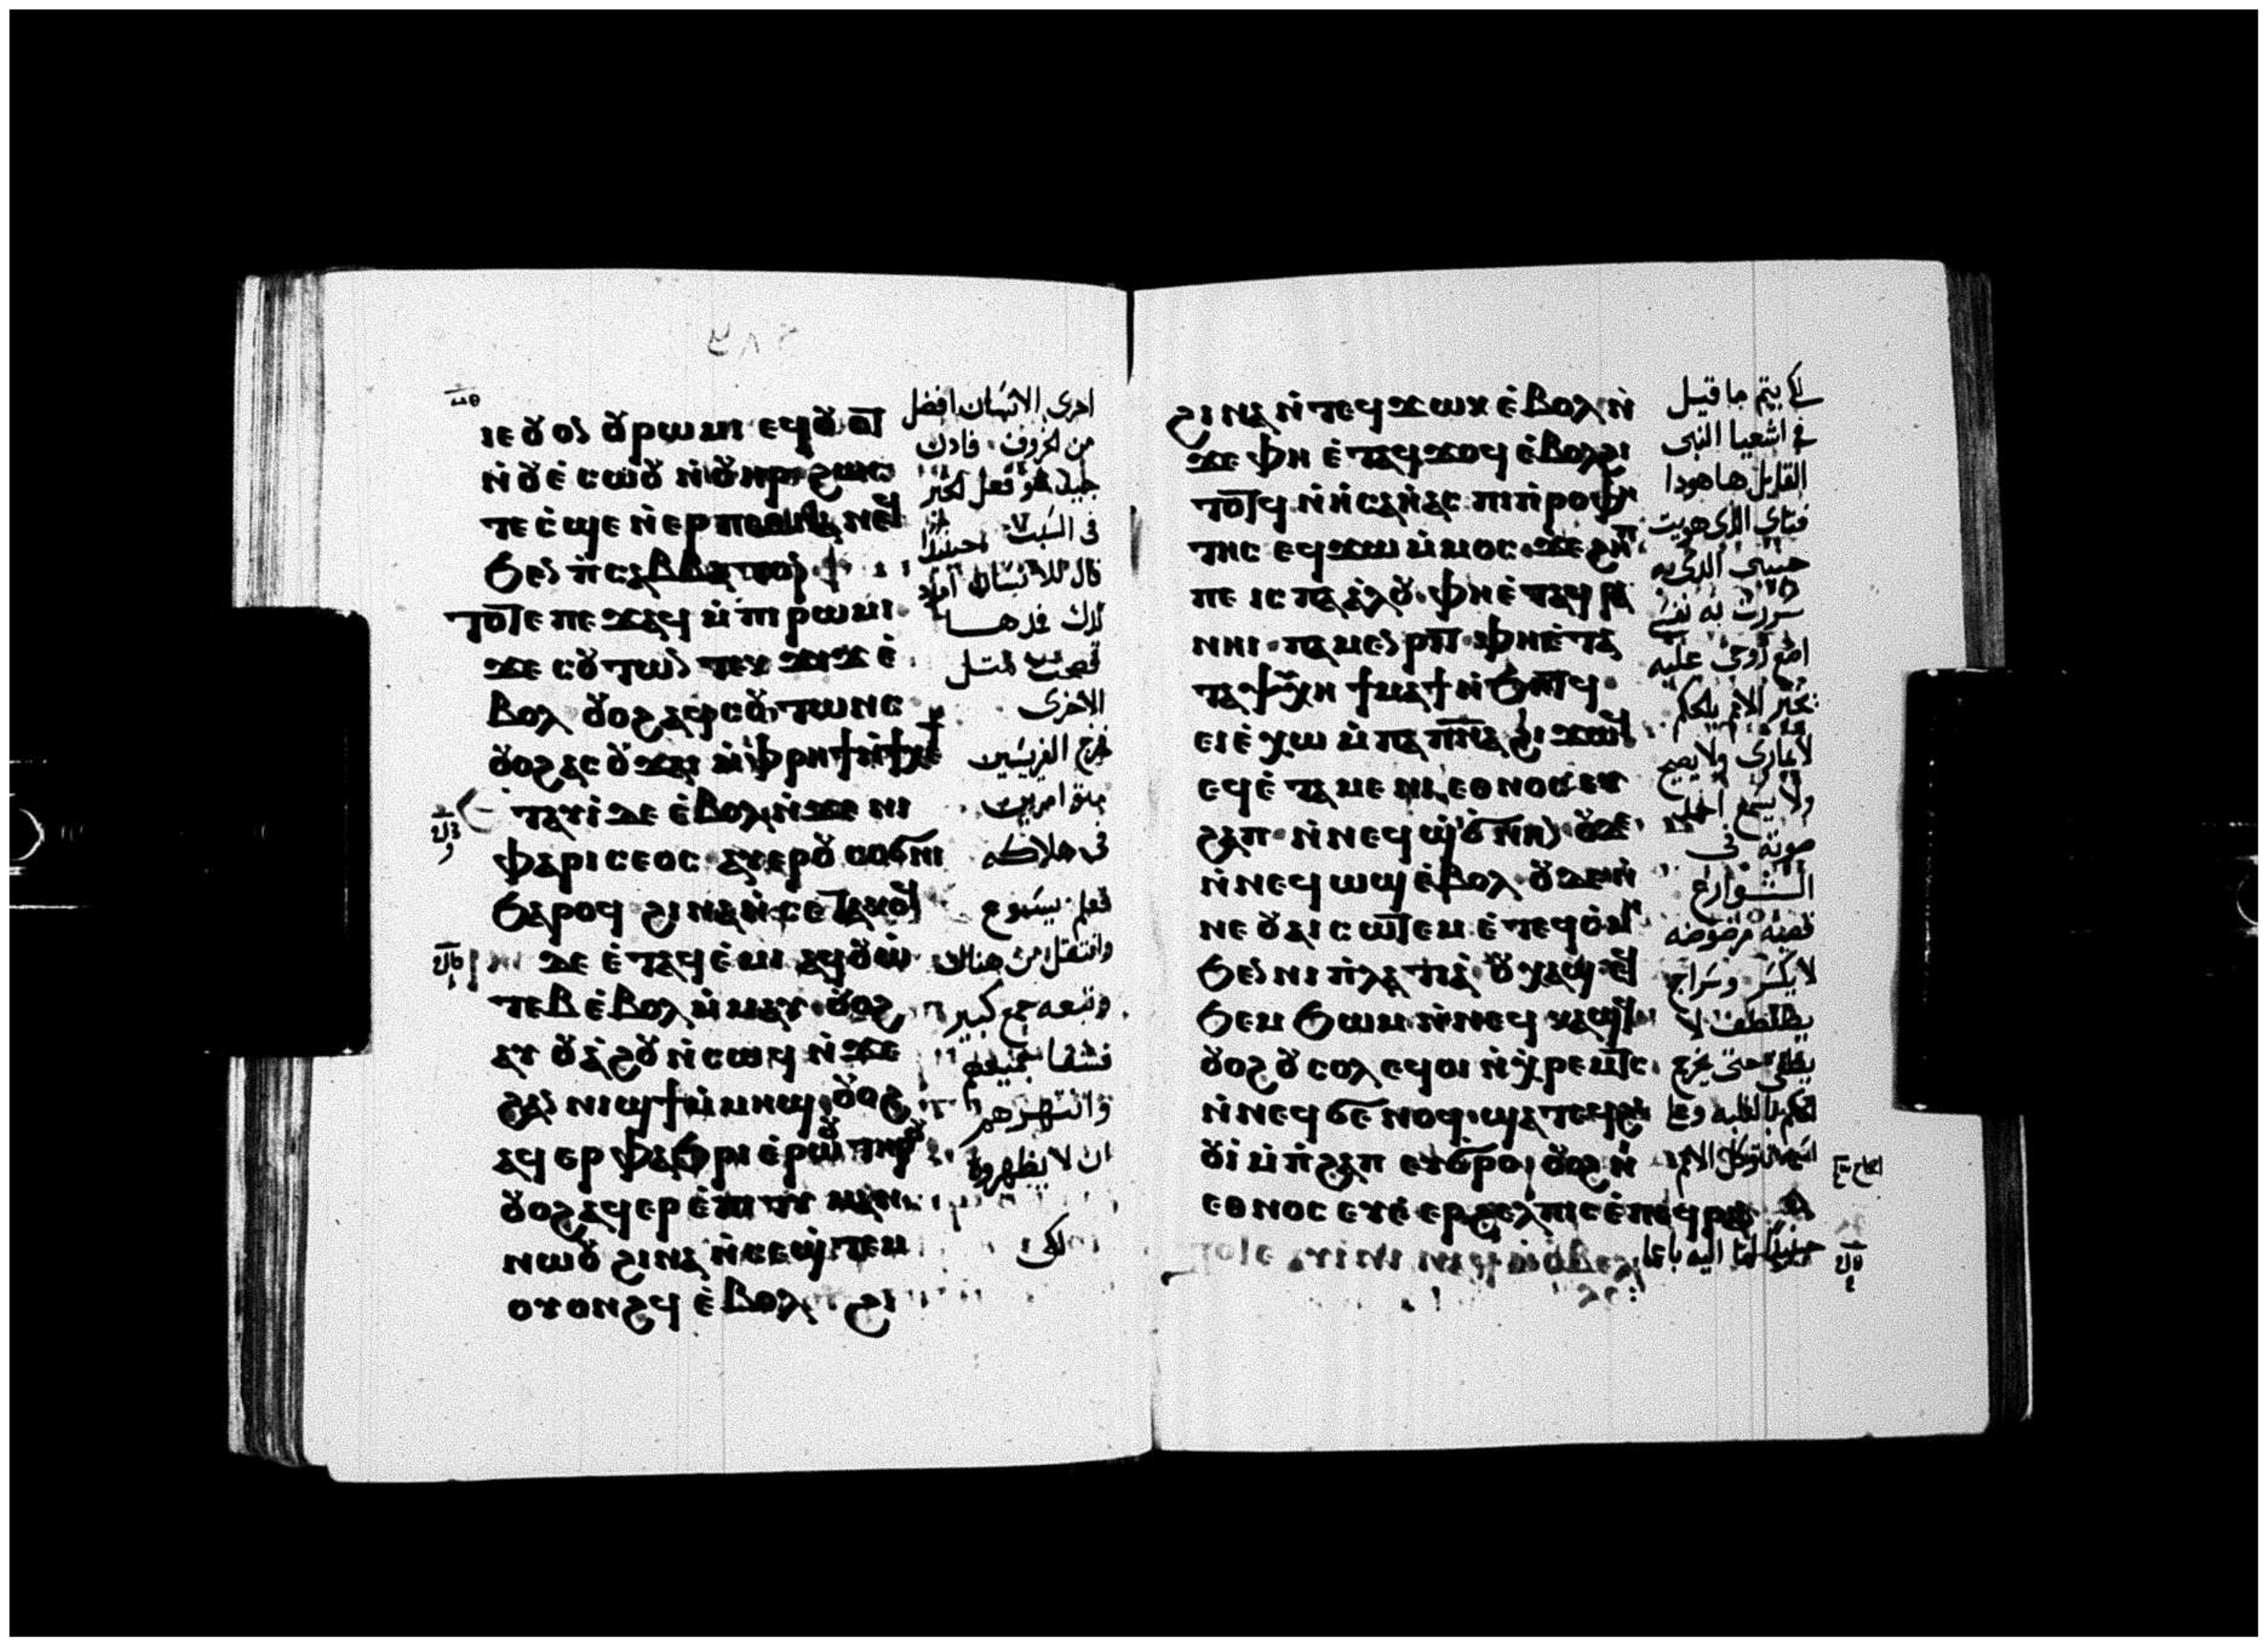 ⲓⲉ ⲟⲩⲟⲛ ⲟⲩⲣⲱⲙⲓ ⲉϥⲟⲩⲟⲧ
ⲛ̇ⲟⲩⲉ̇ⲥⲱⲟⲩ ⲛ̇ⲟⲩⲏⲣ ϩⲱⲥ
ⲧⲉ ⲥ̇ϣⲉ ⲛ̇ⲉⲣⲡⲉⲑⲛⲁⲛⲉϥ
ϧⲉⲛ ⲡ̇ⲥⲁⲃⲃⲁⲧⲟⲛ
ⲧⲟⲧⲉ ⲡⲉϫⲁϥ ⲙ̇ⲡⲓⲣⲱⲙⲓ
ϫⲉ ⲥⲟⲩⲧⲱⲛ ⲧⲉⲕϫⲓϫ ⲉ̇
ⲃⲟⲗ ⲟⲩⲟϩ ⲁϥⲥⲟⲩⲧⲱⲛⲥ
ⲟⲩⲟϩ ⲁⲥⲟⲩϫⲁⲓ ⲙ̇ⲫⲣⲏϯ ⲛ̇ϯⲭⲉⲧ
ⲧⲁⲩⲓ̇ ⲇⲉ ⲉ̇ⲃⲟⲗ ⲛ̇ϫⲉ ⲛⲓ
ⲫⲁⲣⲓⲥⲉⲟⲥ ⲁⲩⲉⲣⲟⲩⲥⲟϭⲛⲓ
ϧⲁⲣⲟϥ ϩⲓⲛⲁ ⲛ̇ⲥⲉⲧⲁⲕⲟϥ
ⲇⲉ ⲉ̇ⲧⲁϥⲉ̇ⲙⲓ ⲁϥⲟⲩⲱ̇
ⲧⲉⲃ ⲉ̇ⲃⲟⲗ ⲙ̇ⲙⲁⲩ ⲟⲩⲟϩ
ⲁⲩⲟⲩⲁ̇ϩⲟⲩ ⲛ̇ⲥⲱϥ ⲛ̇ϫⲉ
ϩⲁⲛⲛⲓϣϯ ⲙ̇ⲙⲏϣ ⲟⲩⲟϩ
ⲁϥⲉⲣⲫⲁϧⲣⲓ ⲉ̇ⲣⲱⲟⲩ ⲧⲏⲣⲟⲩ
ⲟⲩⲟϩ ⲁϥⲉⲣⲉ̇ⲡⲓⲧⲓⲙⲁⲛ
ⲛⲱⲟⲩ ϩⲓⲛⲁ ⲛ̇ⲥⲉϣⲧⲉⲙ
ⲟⲩⲟⲛϩϥ ⲉ̇ⲃⲟⲗ ϩⲓ
احرى الانسان افضل
من الخروف فادن
جيد هو فعل الخير
فى السبت حينئذ
قال للانسان امدد
يدك فمدها
فصحت مثل
الاخرى
فخرج الفريسين
فى هلاكه
فعلم يسوع
وانتقل من هناك
وتبعه جمع كبير
فشفا جميعهم
وانتهرهم
ان لا يظهروه
لكى
ϩⲓⲛⲁ ⲛ̇ⲧⲉϥϫⲱⲕ ⲉ̇ⲃⲟⲗ ⲛ̇
ϫⲉ ⲫⲏ ⲉ̇ⲧⲁϥϫⲟϥ ⲉ̇ⲃⲟⲗϩⲓ
ⲧⲟⲧϥ ⲛ̇ⲏ̇ⲥⲁⲏ̇ⲁⲥ ⲡⲓⲡ̇ⲣⲟⲫⲏ
ⲧⲏⲥ ⲉϥϫⲱ ⲙ̇ⲙⲟⲥ ϫⲉ ϩⲏⲡ
ⲡⲉ ⲓⲥ ⲡⲁⲁ̇ⲗⲟⲩ ⲫⲏ ⲉ̇ⲧⲁϥⲣⲁ
ⲛⲏⲓ ⲡⲁⲙⲉⲛⲣⲓⲧ ⲫⲏ ⲉ̇ⲧⲁ
ⲧⲁⲯⲩⲭⲏ ϯⲙⲁϯ ⲛ̇ϧⲏⲧϥ
ⲉⲓⲉ̇ⲭⲱ ⲙ̇ⲡⲁⲡⲛⲁ ϩⲓϫⲱϥ
ⲉϥⲉ̇ⲧⲁⲙⲉ ⲛⲓⲉⲑⲛⲟⲥ ⲉⲩ
ϩⲁⲡ ⲛ̇ⲛⲉϥϣϭⲛⲏⲛ ⲟⲩⲇⲉ
ⲛ̇ⲛⲉϥⲱϣ ⲉ̇ⲃⲟⲗ ⲟⲩⲇⲉ ⲛ̇
ⲛⲉ ⲟⲩⲁⲓ ⲥⲱⲧⲉⲙ ⲉ̇ⲧⲉϥⲥⲙⲏ
ϧⲉⲛ ⲛⲓⲡ̇ⲗⲁⲧⲓⲁ ⲟⲩⲕⲁϣ ⲉϥ
ϧⲉⲙϧⲱⲙ ⲛ̇ⲛⲉϥⲕⲁϣϥ
ⲟⲩⲟϩ ⲟⲩⲥⲟⲗ ⲉϥⲟⲓ ⲛ̇ⲭⲣⲉⲙⲧⲥ
ⲛ̇ⲛⲉϥϭⲉⲛⲟϥ ϣⲁⲧⲉϥϩⲓ
ⲟⲩⲓ̇ ⲙ̇ⲡ̇ϩⲁⲡ ⲉⲩϭⲣⲟ ⲟⲩⲟϩ ⲛⲓ
ⲉⲑⲛⲟⲥ ⲉⲩⲉ̇ⲉⲣϩⲉⲗⲡⲓⲥ ⲉ̇ⲡⲉϥⲣⲁⲛ
لكى يتم ما قيل
فى اشعيا النبى
القايل هاهودا
فتاى الذى هويت
حبيبى الذى به
سررت به نفسى
اضع روحى عليه
يخبر الامم بالحكم
لا يمارى ولا يصيح
ولا يسمع احد
صوته فى
الشوارع
قصبة مرضوضه
لا يكسر وسراج
يطفطف لا
يطفى حتى يخرج